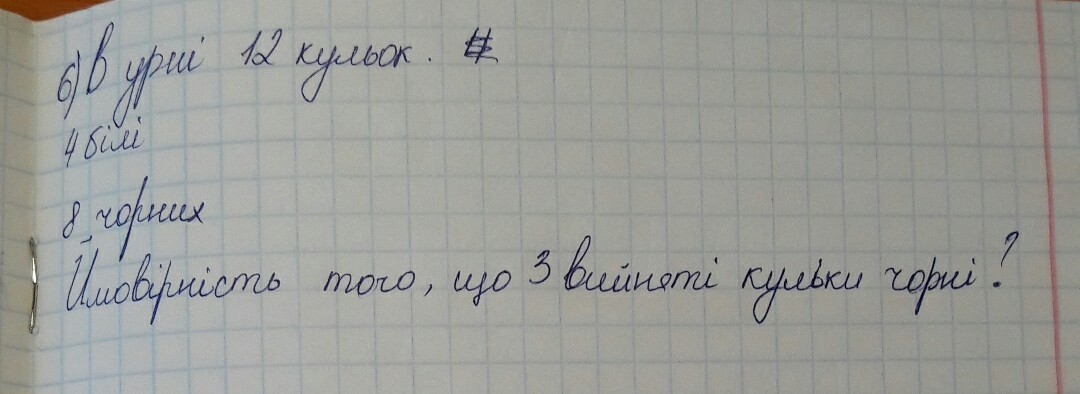 6) В урні 12 кульок.
4 білі
8 чорних
Ймовірність того, що 3 вийняті кульки чорні?